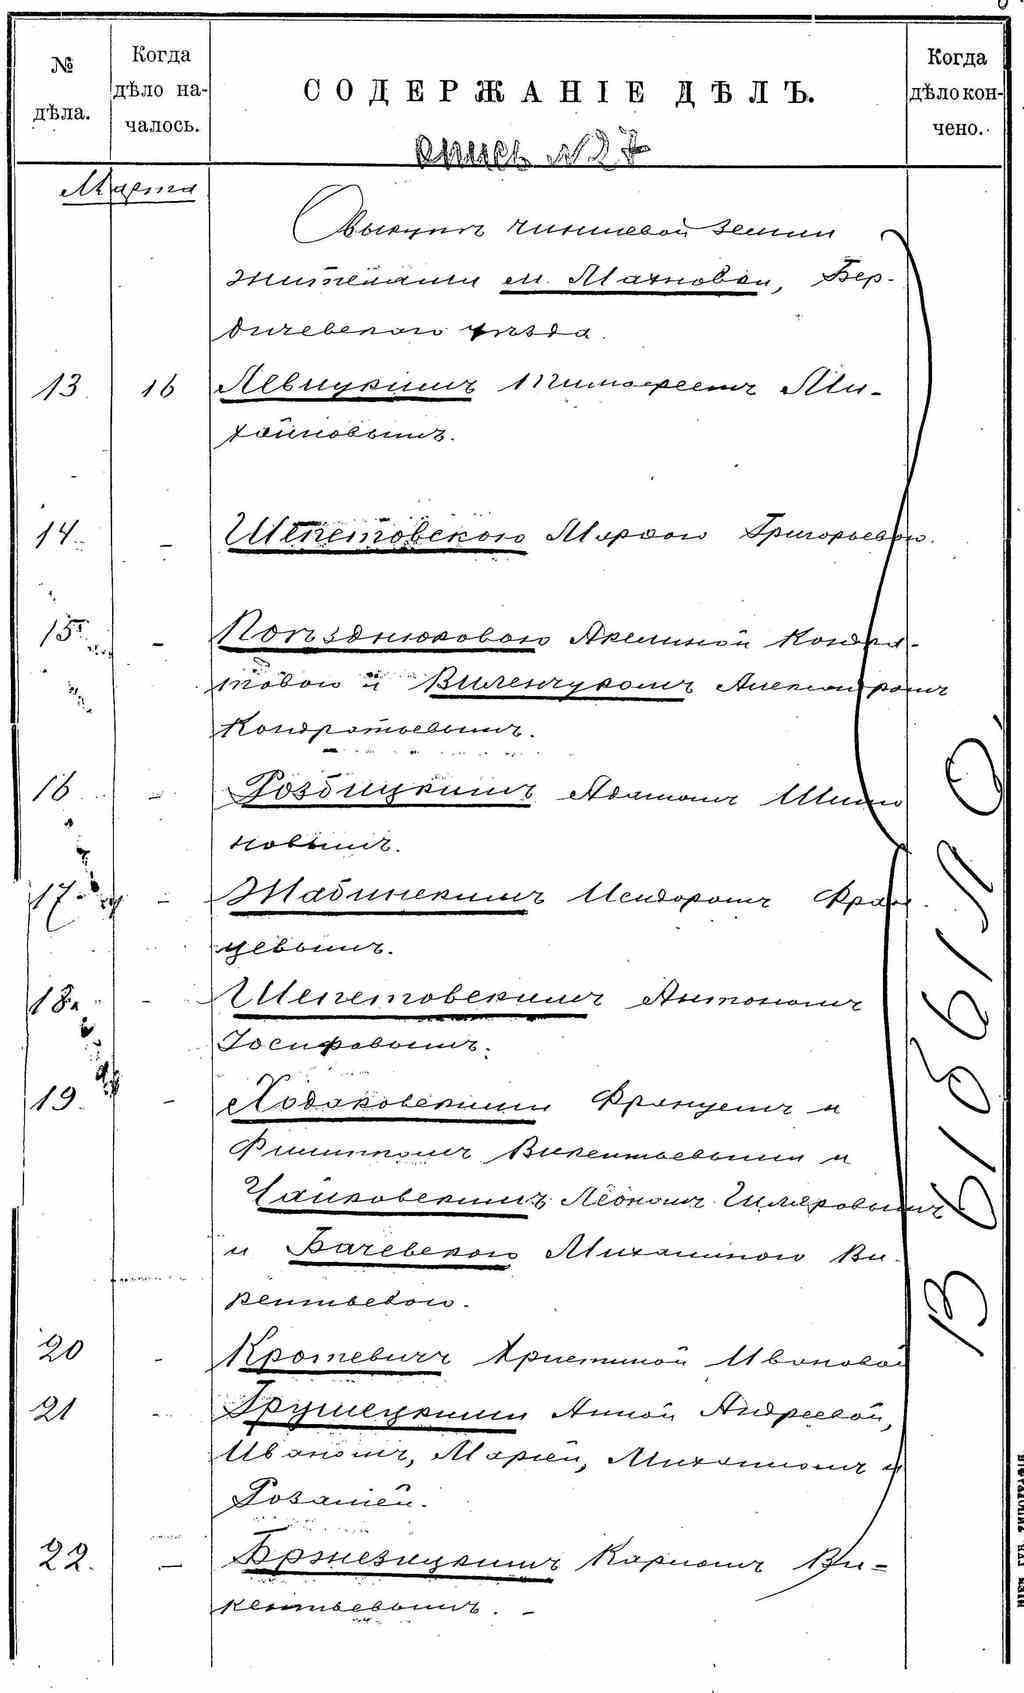 № дѣла.
Когда дѣло на-
чалось.
СОДЕРЖАНІЕ ДѢЛЪ.
Когда дѣло кон-
чено.
опись №27
Марта
О выкупѣ чиншевой земли
жителями м. Махновки, Бер-
дичевскаго уѣзда.
13 16 Левицкимъ Тимофеемъ Ми-
хайловымъ.
14 - Шепетовскою Марѳою Григорьевою.
15 - Поѣзднюковою Акелиной Кондра-
товою и Виленчукомъ Александромъ
Кондратьевымъ.
16 - Розбицкимъ Адамомъ Шимо
новымъ.
17 - Жабинскимъ Исидоромъ Фран
цевымъ.
18 - Шепетовскимъ Антономъ
Іосифовымъ.
19 - Ходаковскими Францемъ и
Филиппомъ Викентьевыми и
Чайковскимъ Леономъ Гиляровымъ
и Бачевскою Михалиною Ви-
кентьевою.
20 - Кротевичъ Христиной Ивановой
21 - Грушецкими Анной Андреевой,
Иваномъ, Маріей, Михаиломъ и
Розаліей.
22. - Бржезицкимъ Карломъ Ви-
кентьевымъ. -
ВЫБЫЛО